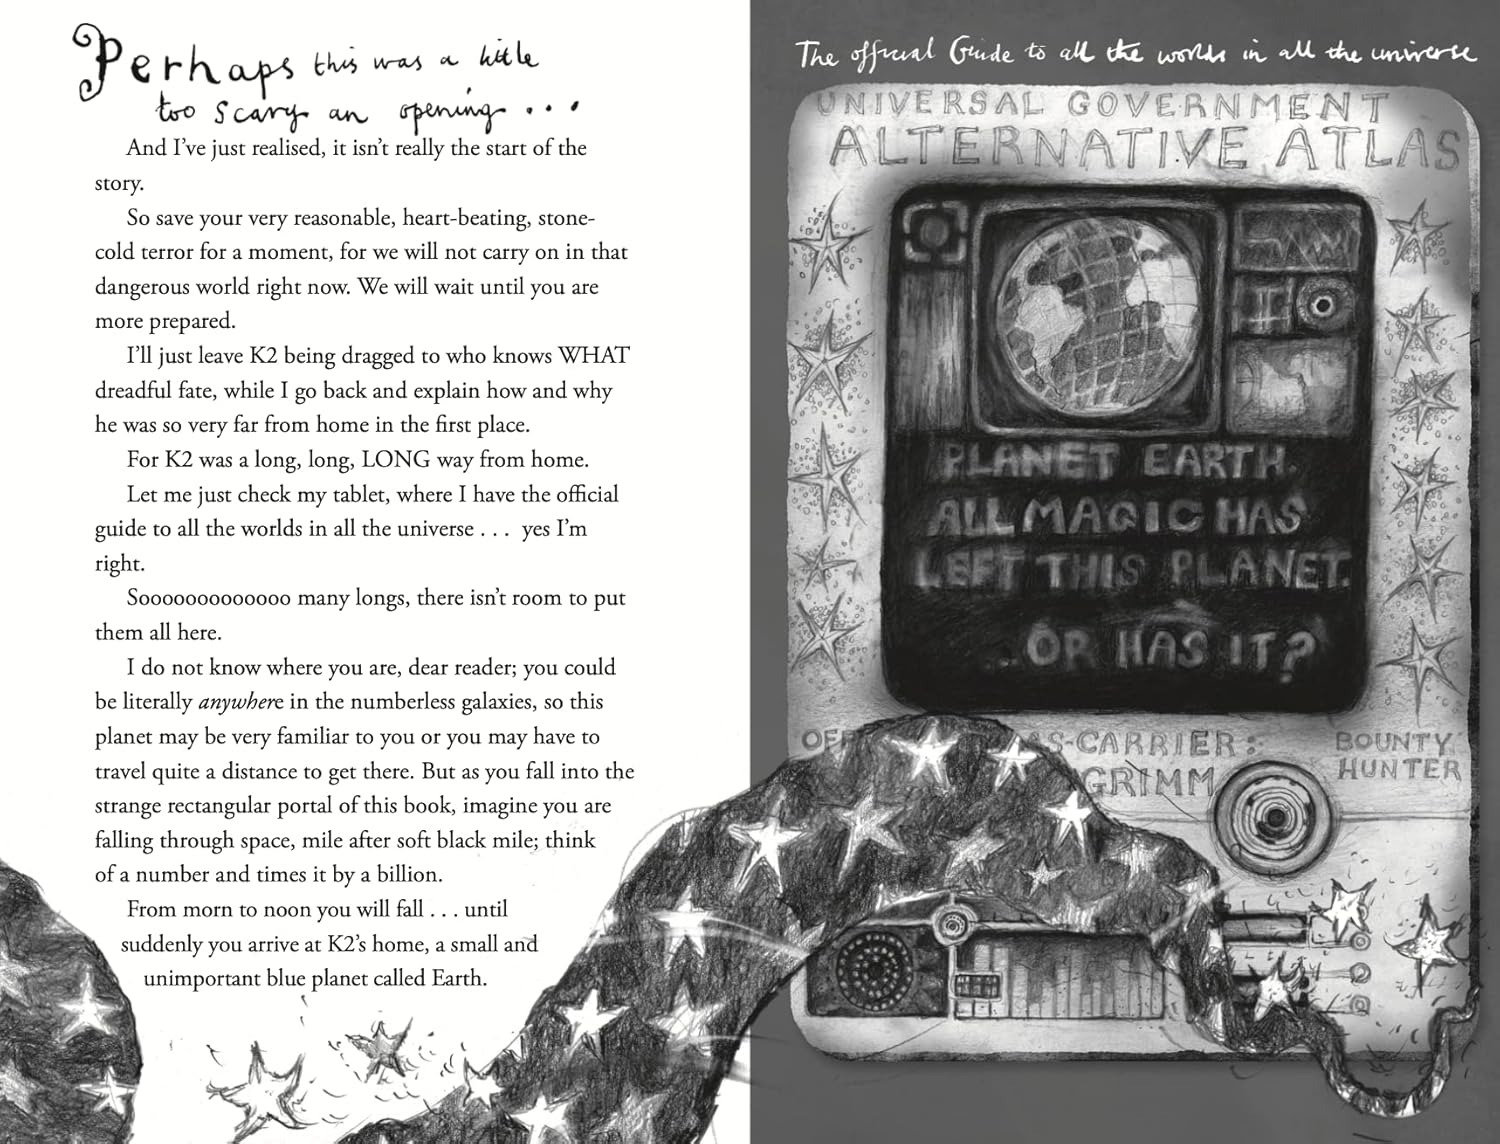 Perhaps this was a little
too scary an opening . . .
And I’ve just realised, it isn’t really the start of the
story.
So save your very reasonable, heart-beating, stone-
cold terror for a moment, for we will not carry on in that
dangerous world right now. We will wait until you are
more prepared.
I’ll just leave K2 being dragged to who knows WHAT
dreadful fate, while I go back and explain how and why
he was so very far from home in the first place.
For K2 was a long, long, LONG way from home.
Let me just check my tablet, where I have the official
guide to all the worlds in all the universe . . . yes I’m
right.
Sooooooooooooo many longs, there isn’t room to put
them all here.
I do not know where you are, dear reader; you could
be literally anywhere in the numberless galaxies, so this
planet may be very familiar to you or you may have to
travel quite a distance to get there. But as you fall into the
strange rectangular portal of this book, imagine you are
falling through space, mile after soft black mile; think
of a number and times it by a billion.
From morn to noon you will fall . . . until
suddenly you arrive at K2’s home, a small and
unimportant blue planet called Earth.
The official Guide to all the worlds in all the universe
UNIVERSAL GOVERNMENT
ALTERNATIVE ATLAS
PLANET EARTH.
ALL MAGIC HAS
LEFT THIS PLANET.
...OR HAS IT?
AS-CARRIER:
GRIMM
BOUNTY
HUNTER